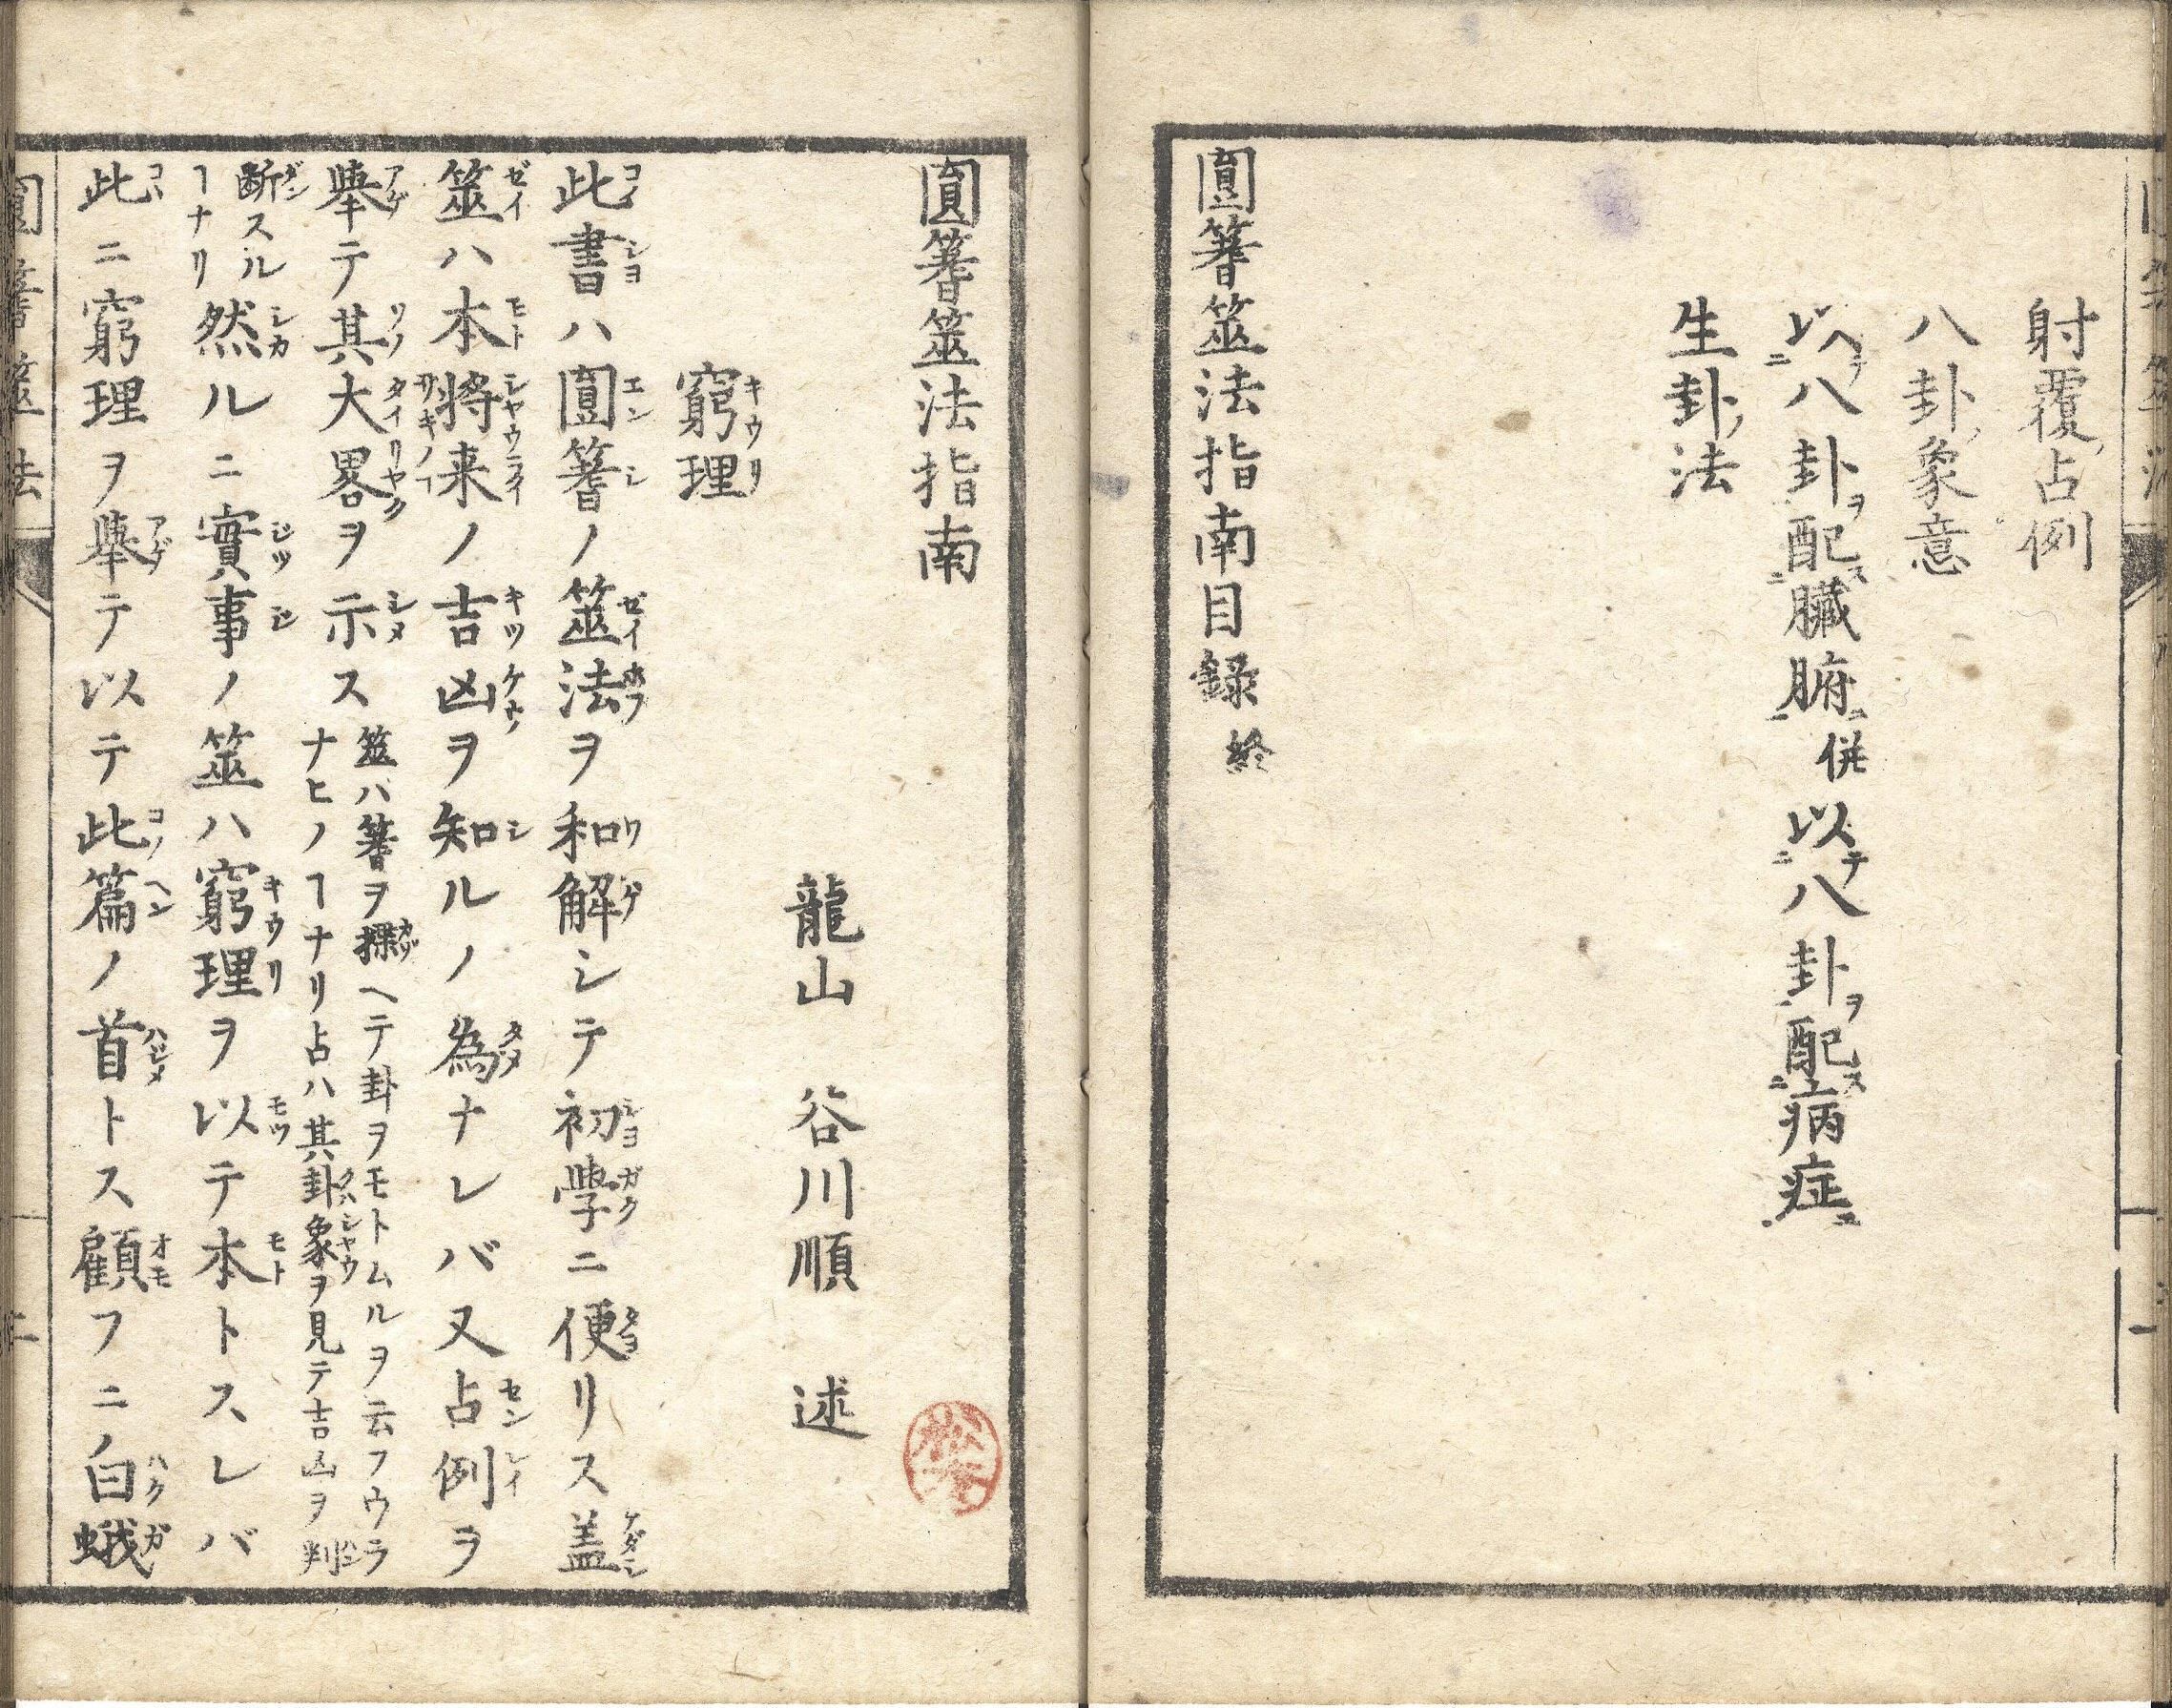 射覆ノ占例
八卦ノ象意
以テ八卦ヲ配ス臓腑ニ併以テ八卦ヲ配ス病症ニ
生卦ノ法
圓蓍筮法指南目録終
圓蓍筮法指南
龍山 谷川順 述
窮理
此書ハ圓蓍ノ筮法ヲ和解シテ初學ニ便リス盖
筮ハ本將来ノ吉凶ヲ知ルノ為ナレバ又占例ヲ
舉テ其大畧ヲ示ス筮ハ蓍ヲ揲ヘテ卦ヲモトムルヲ云フウラ
ナヒノヿナリ占ハ其卦象ヲ見テ吉凶ヲ判
断スル
ヿナリ然ルニ實事ノ筮ハ窮理ヲ以テ本トスレバ
此ニ窮理ヲ舉テ以テ此篇ノ首トス顧フニ白蛾
圓蓍筮法